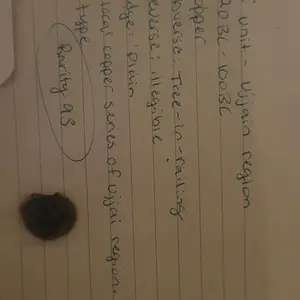 unit - Ujjain region
20BC - 100BC
pper
verse: Tree-in-railing
verse: illegible
dge: Plain
local copper series of Ujjai region.
type
Rarity 93